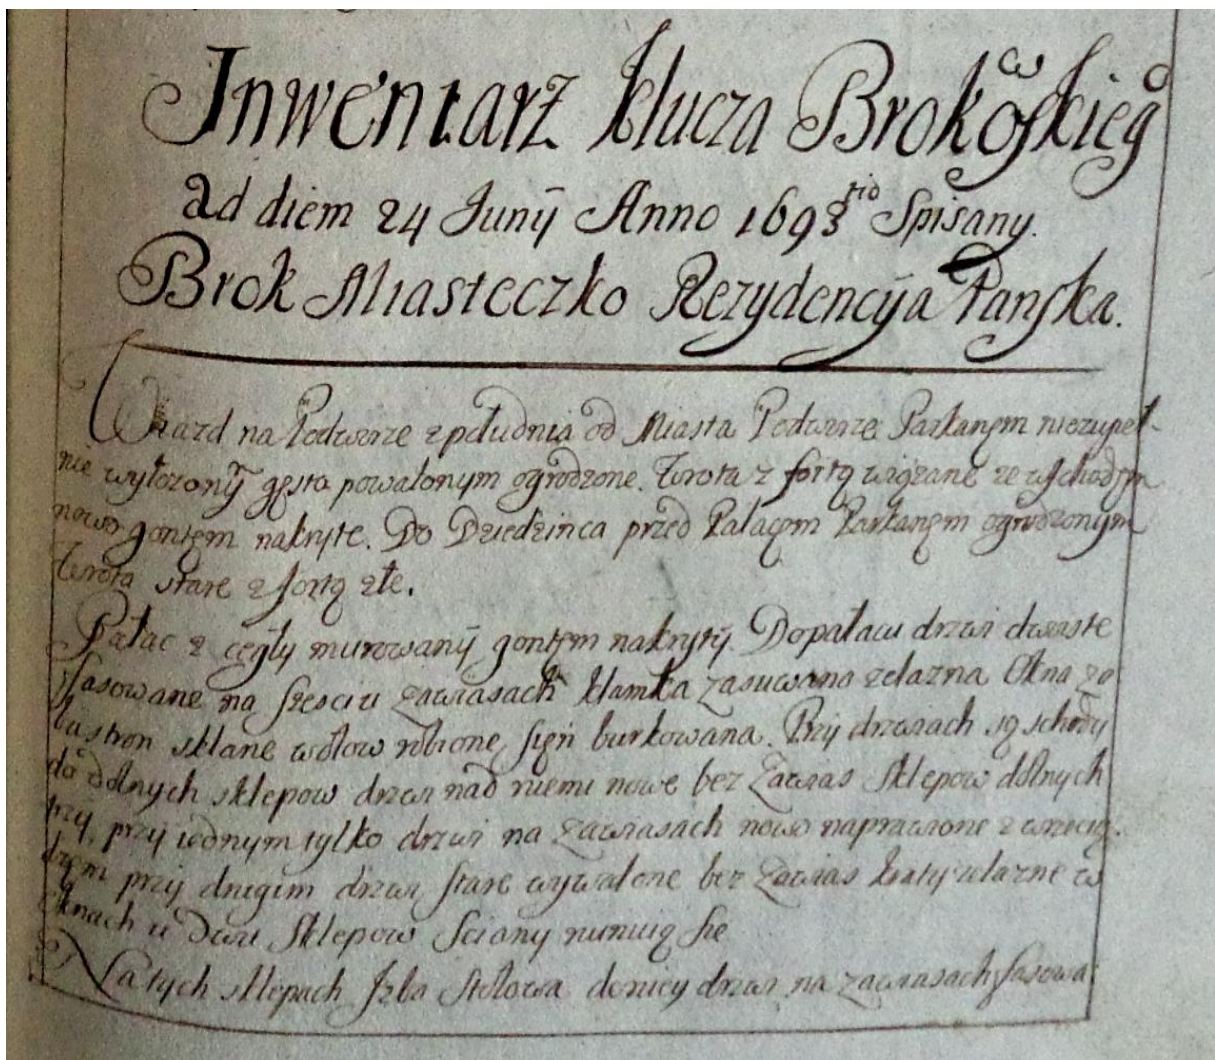 Inwentarz Klucza Brokowskieg°
ad diem 24 Junÿ Anno 1693tio Spisany.
Brok Miasteczko Rezydencÿa Panska.
Wiazd na Podworze z południa od Miasta Podworze Parkanem niezupeł-
nie wyłozonÿ gęsto powalonym ogrodzone. Wrota z fortą wiązane ze wschodem
nowo gontem nakryte. Do Dziedzinca przed Pałacem Parkanem ogrodzonym
Wrota stare z fortą złe.
Pałac z cegły murowanÿ gontem nakrytÿ. Do pałacu drzwi dwoiste
fasowane na szesciu zawiasach klamka zasuwana zelazna Okna po
bustron sklane wołow robione, sień burkowana. Przÿ drzwiach są schody
do dolnych sklepow drzwi nad niemi nowe bez zawias Sklepow dolnych
trzÿ, przÿ iednym tylko drzwi na zawiasach nowo naprawione z wrzecią-
dzem przÿ drugim drzwi stare wywalone bez zawias kraty zelazne w
oknach u Dwu Sklepow Sciany ruinuią się
Na tych sklepach Izba Stołowa do niey drzwi na zawiasach fasowa